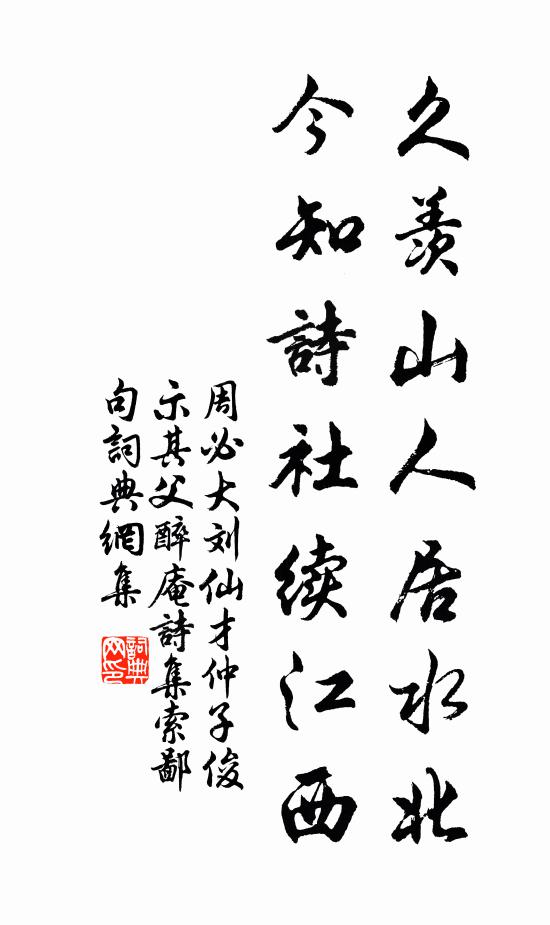 久羨山人居水北
今知詩社续江西
周必大刘仙才仲子俊
示其父醉庵詩集索鄙
句詞典網集
詞典网印